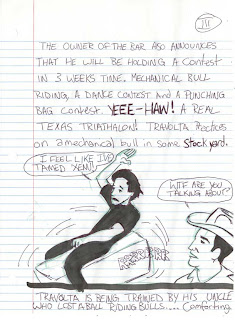 III
THE OWNER OF THE BAR ALSO ANNOUNCES
THAT HE WILL BE HOLDING A Contest
IN 3 WEEKS TIME. MECHANICAL BULL
RIDING, A DANCE CONTEST and A PUNCHING
BAG Contest. YEEE-HAW! A REAL
TEXAS TRIATHALON! TRAVOLTA Practices
on a mechanical bull in some Stockyard.
I FEEL LIKE I'VE
TAMED XENU!
WTF ARE YOU
TALKING ABOUT?
TRAVOLTA IS BEING TRAINED BY HIS UNCLE
WHO LOST A BALL RIDING BULLS.... Comforting.